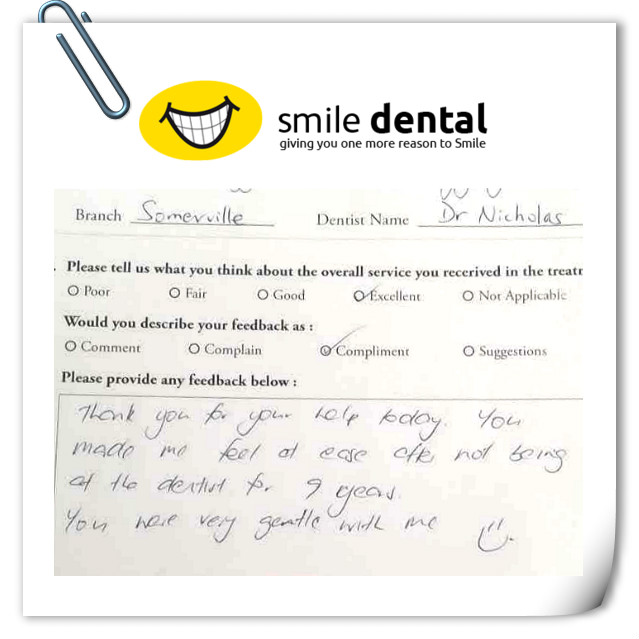 smile dental
giving you one more reason to Smile
Branch Somerville Dentist Name Dr Nicholas
Please tell us what you think about the overall service you recerived in the treatr
O Poor O Fair O Good O Excellent O Not Applicable
Would you describe your feedback as :
O Comment O Complain O Compliment O Suggestions
Please provide any feedback below :
Thank you for your help today. You
made me feel at ease after not being
at the dentist for 9 years.
You were very gentle with me